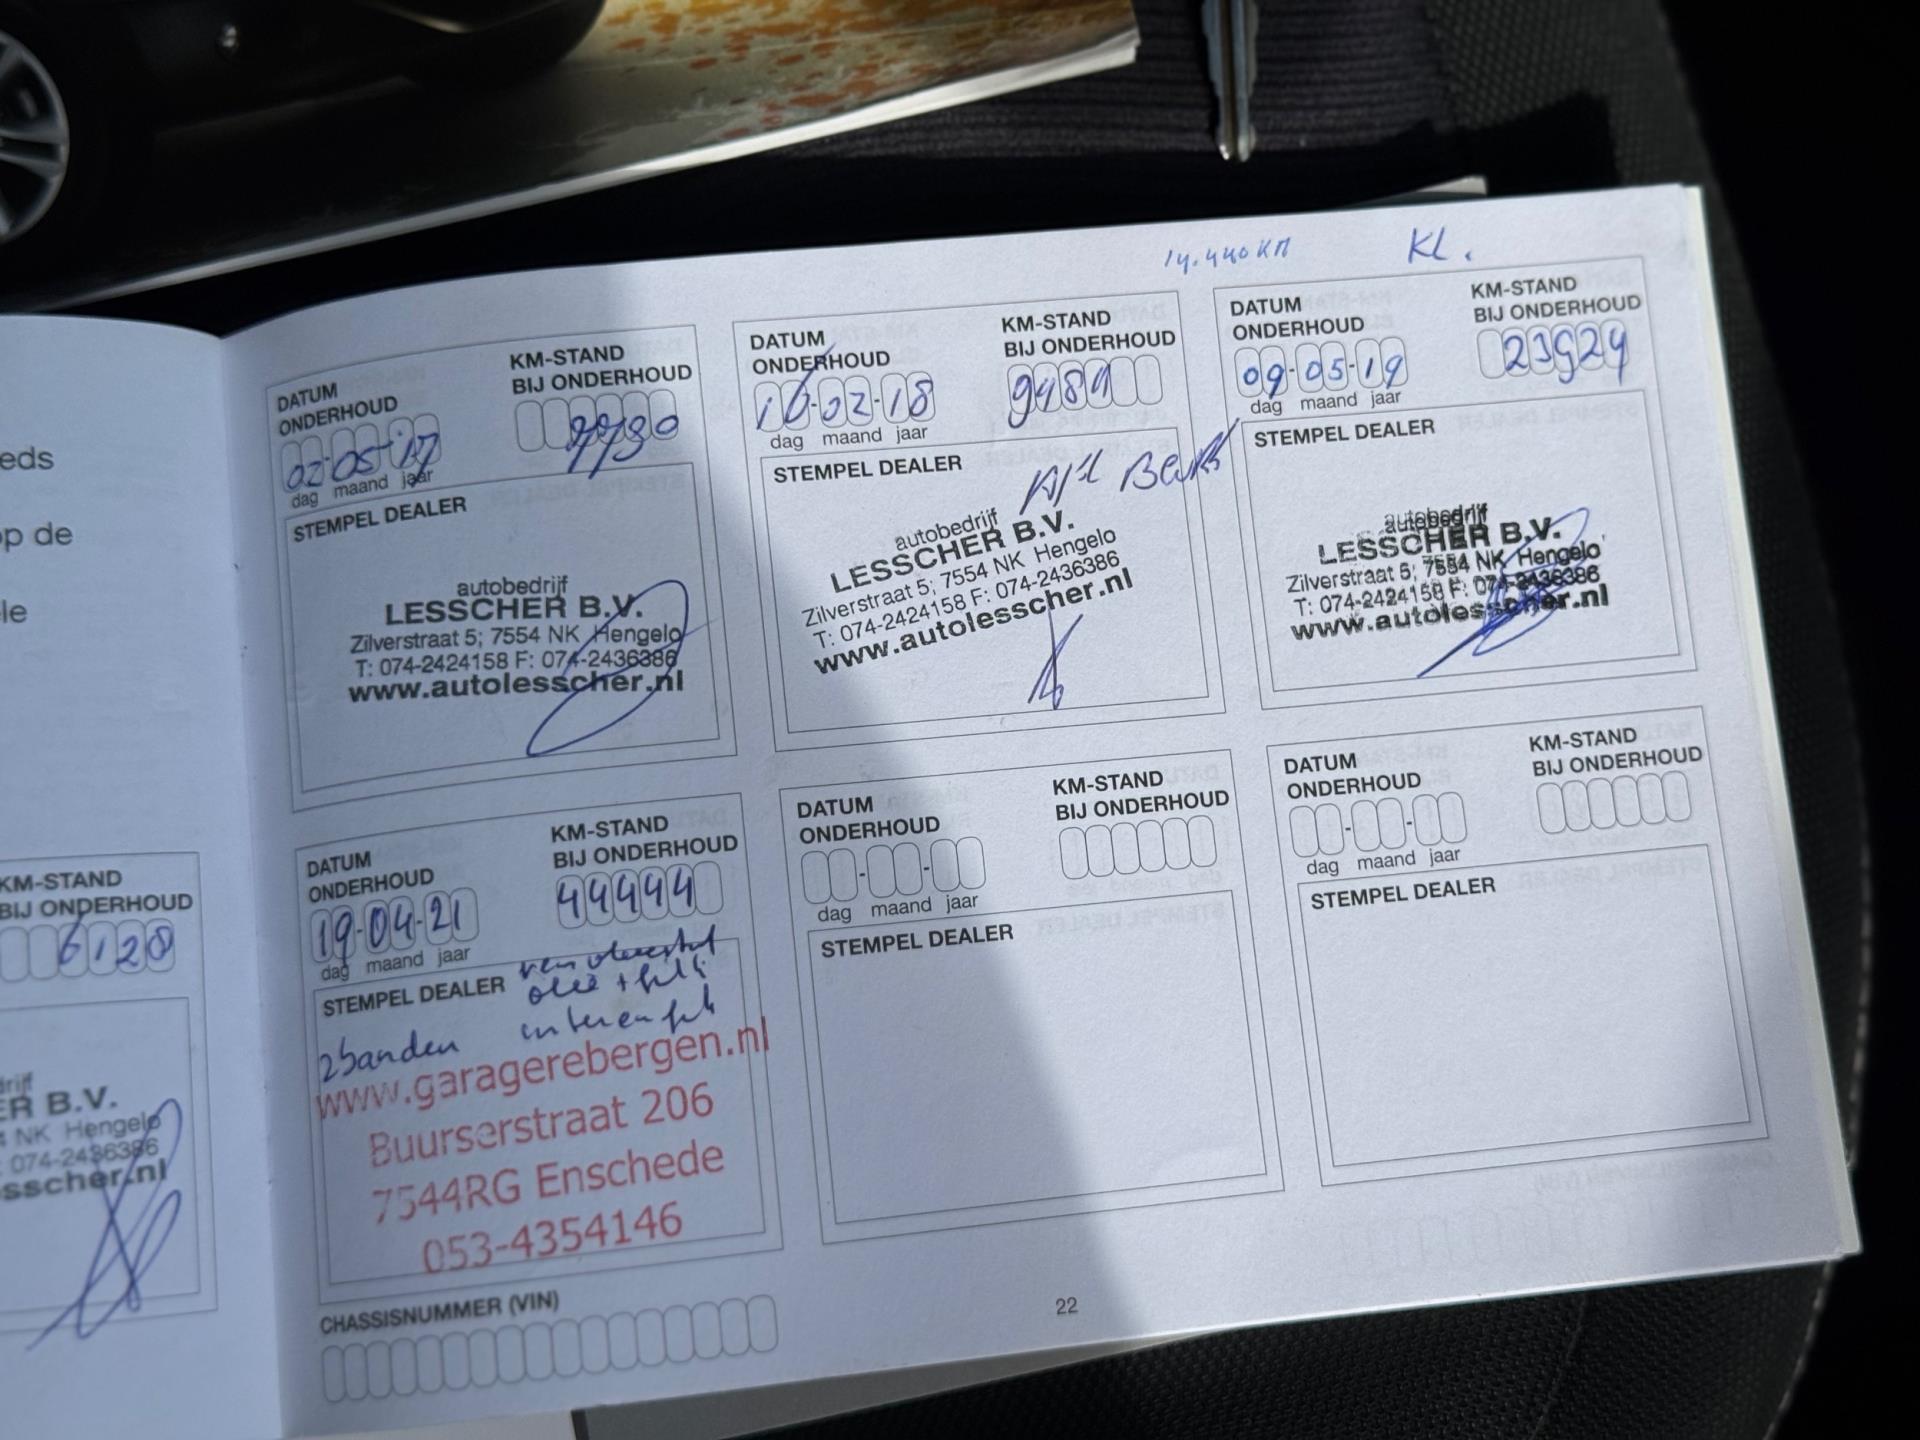 eds
op de
ele
KM-STAND
BIJ ONDERHOUD
6128
drijf
ER B.V.
4 NK Hengelo
074-2436386
esscher.nl
14.440 KM
KL.
DATUM
ONDERHOUD
KM-STAND
BIJ ONDERHOUD
02-05-17
7730
dag maand jaar
STEMPEL DEALER
autobedrijf
LESSCHER B.V.
Zilverstraat 5; 7554 NK Hengelo
T: 074-2424158 F: 074-2436386
www.autolesscher.nl
DATUM
ONDERHOUD
KM-STAND
BIJ ONDERHOUD
16-02-18
dag maand jaar
STEMPEL DEALER
autobedrijf
LESSCHER B.V.
Zilverstraat 5; 7554 NK Hengelo
T: 074-2424158 F: 074-2436386
www.autolesscher.nl
DATUM
ONDERHOUD
KM-STAND
BIJ ONDERHOUD
09-05-19
23924
dag maand jaar
STEMPEL DEALER
autobedrijf
LESSCHER B.V.
Zilverstraat 5; 7554 NK Hengelo
T: 074-2424158 F: 074-2436386
www.autolesscher.nl
DATUM
ONDERHOUD
KM-STAND
BIJ ONDERHOUD
19-04-21
44444
dag maand jaar
STEMPEL DEALER
olie +
2 banden
www.garagerebergen.nl
Buurserstraat 206
7544RG Enschede
053-4354146
CHASSISNUMMER (VIN)
DATUM
ONDERHOUD
KM-STAND
BIJ ONDERHOUD
dag maand jaar
STEMPEL DEALER
DATUM
ONDERHOUD
KM-STAND
BIJ ONDERHOUD
dag maand jaar
STEMPEL DEALER
22